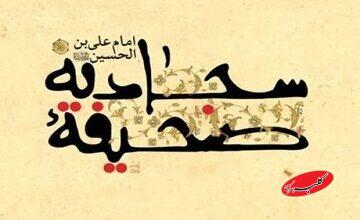 امام علی بن
الحسین
صحیفهٔ
سجادیه